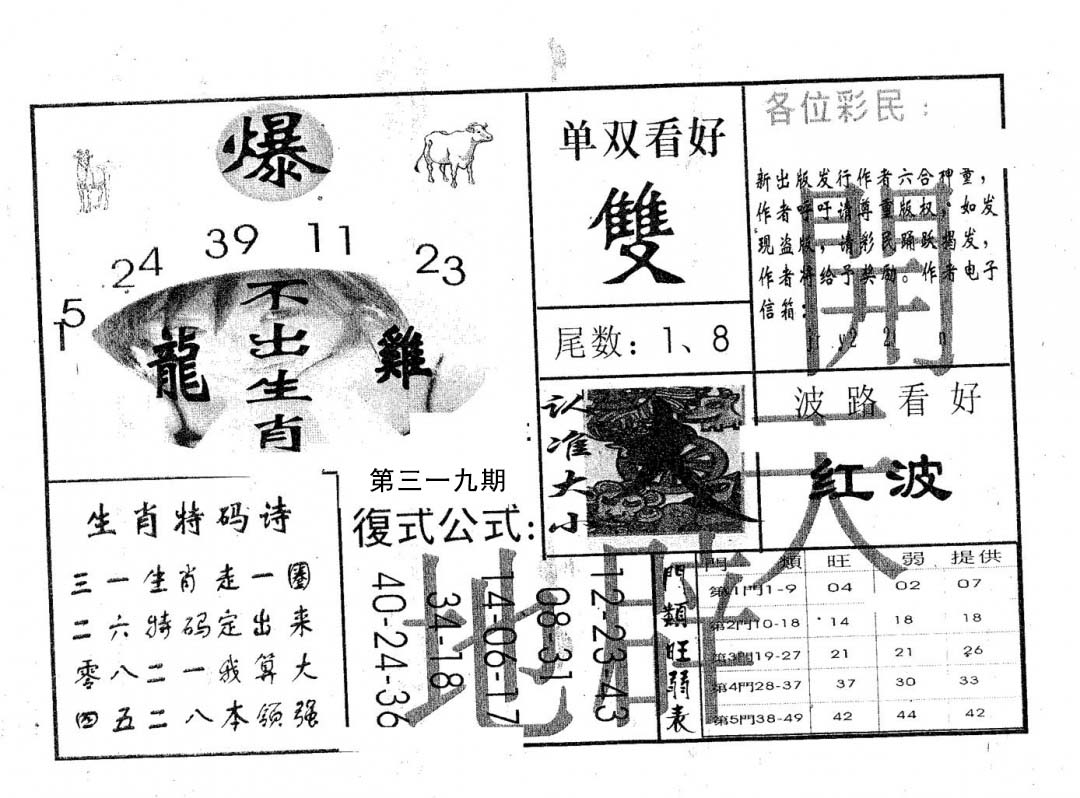 爆
5
1
24
39
11
23
不出生肖
龍
雞
单双看好
雙
尾数：1、8
各位彩民：
新出版发行作者六合神童，
作者呼吁请尊重版权，如发
现盗版，请彩民踊跃揭发，
作者将给予奖励。作者电子
信箱：
開天地
波路看好
红波
认准大小
大
第三一九期
生肖特码诗
三一生肖走一圈
二六特码定出来
零八二一我算大
四五二八本领强
復式公式：
40-24-36
34-18
14-06-17
08-31
12-23-43
門類旺弱表
門 類 旺 弱 提供
第1門1-9 04 02 07
第2門10-18 14 18 18
第3門19-27 21 21 26
第4門28-37 37 30 33
第5門38-49 42 44 42